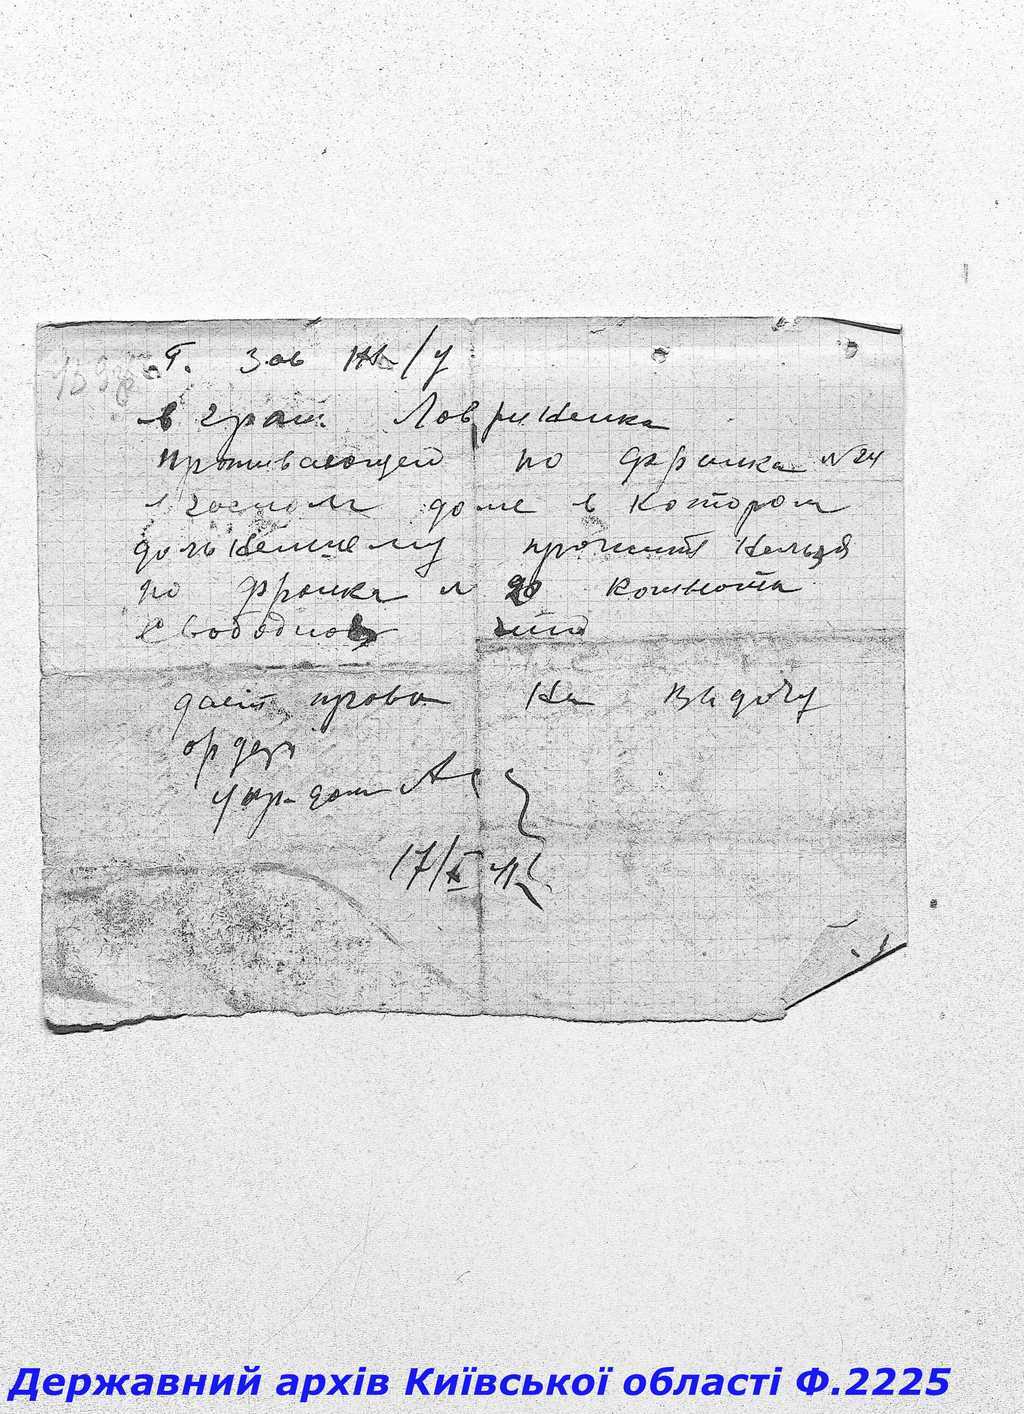 Т. Зав Ж/У
в граж. Лавриненка
проживающей по Франка №24
в гасном доме в котором
дальнейшему прожит нельзя
по Франка № 20 комната
свободно
даёт право на выдачу
ордер
Упр. дом
17/X 41
Державний архів Київської області Ф.2225